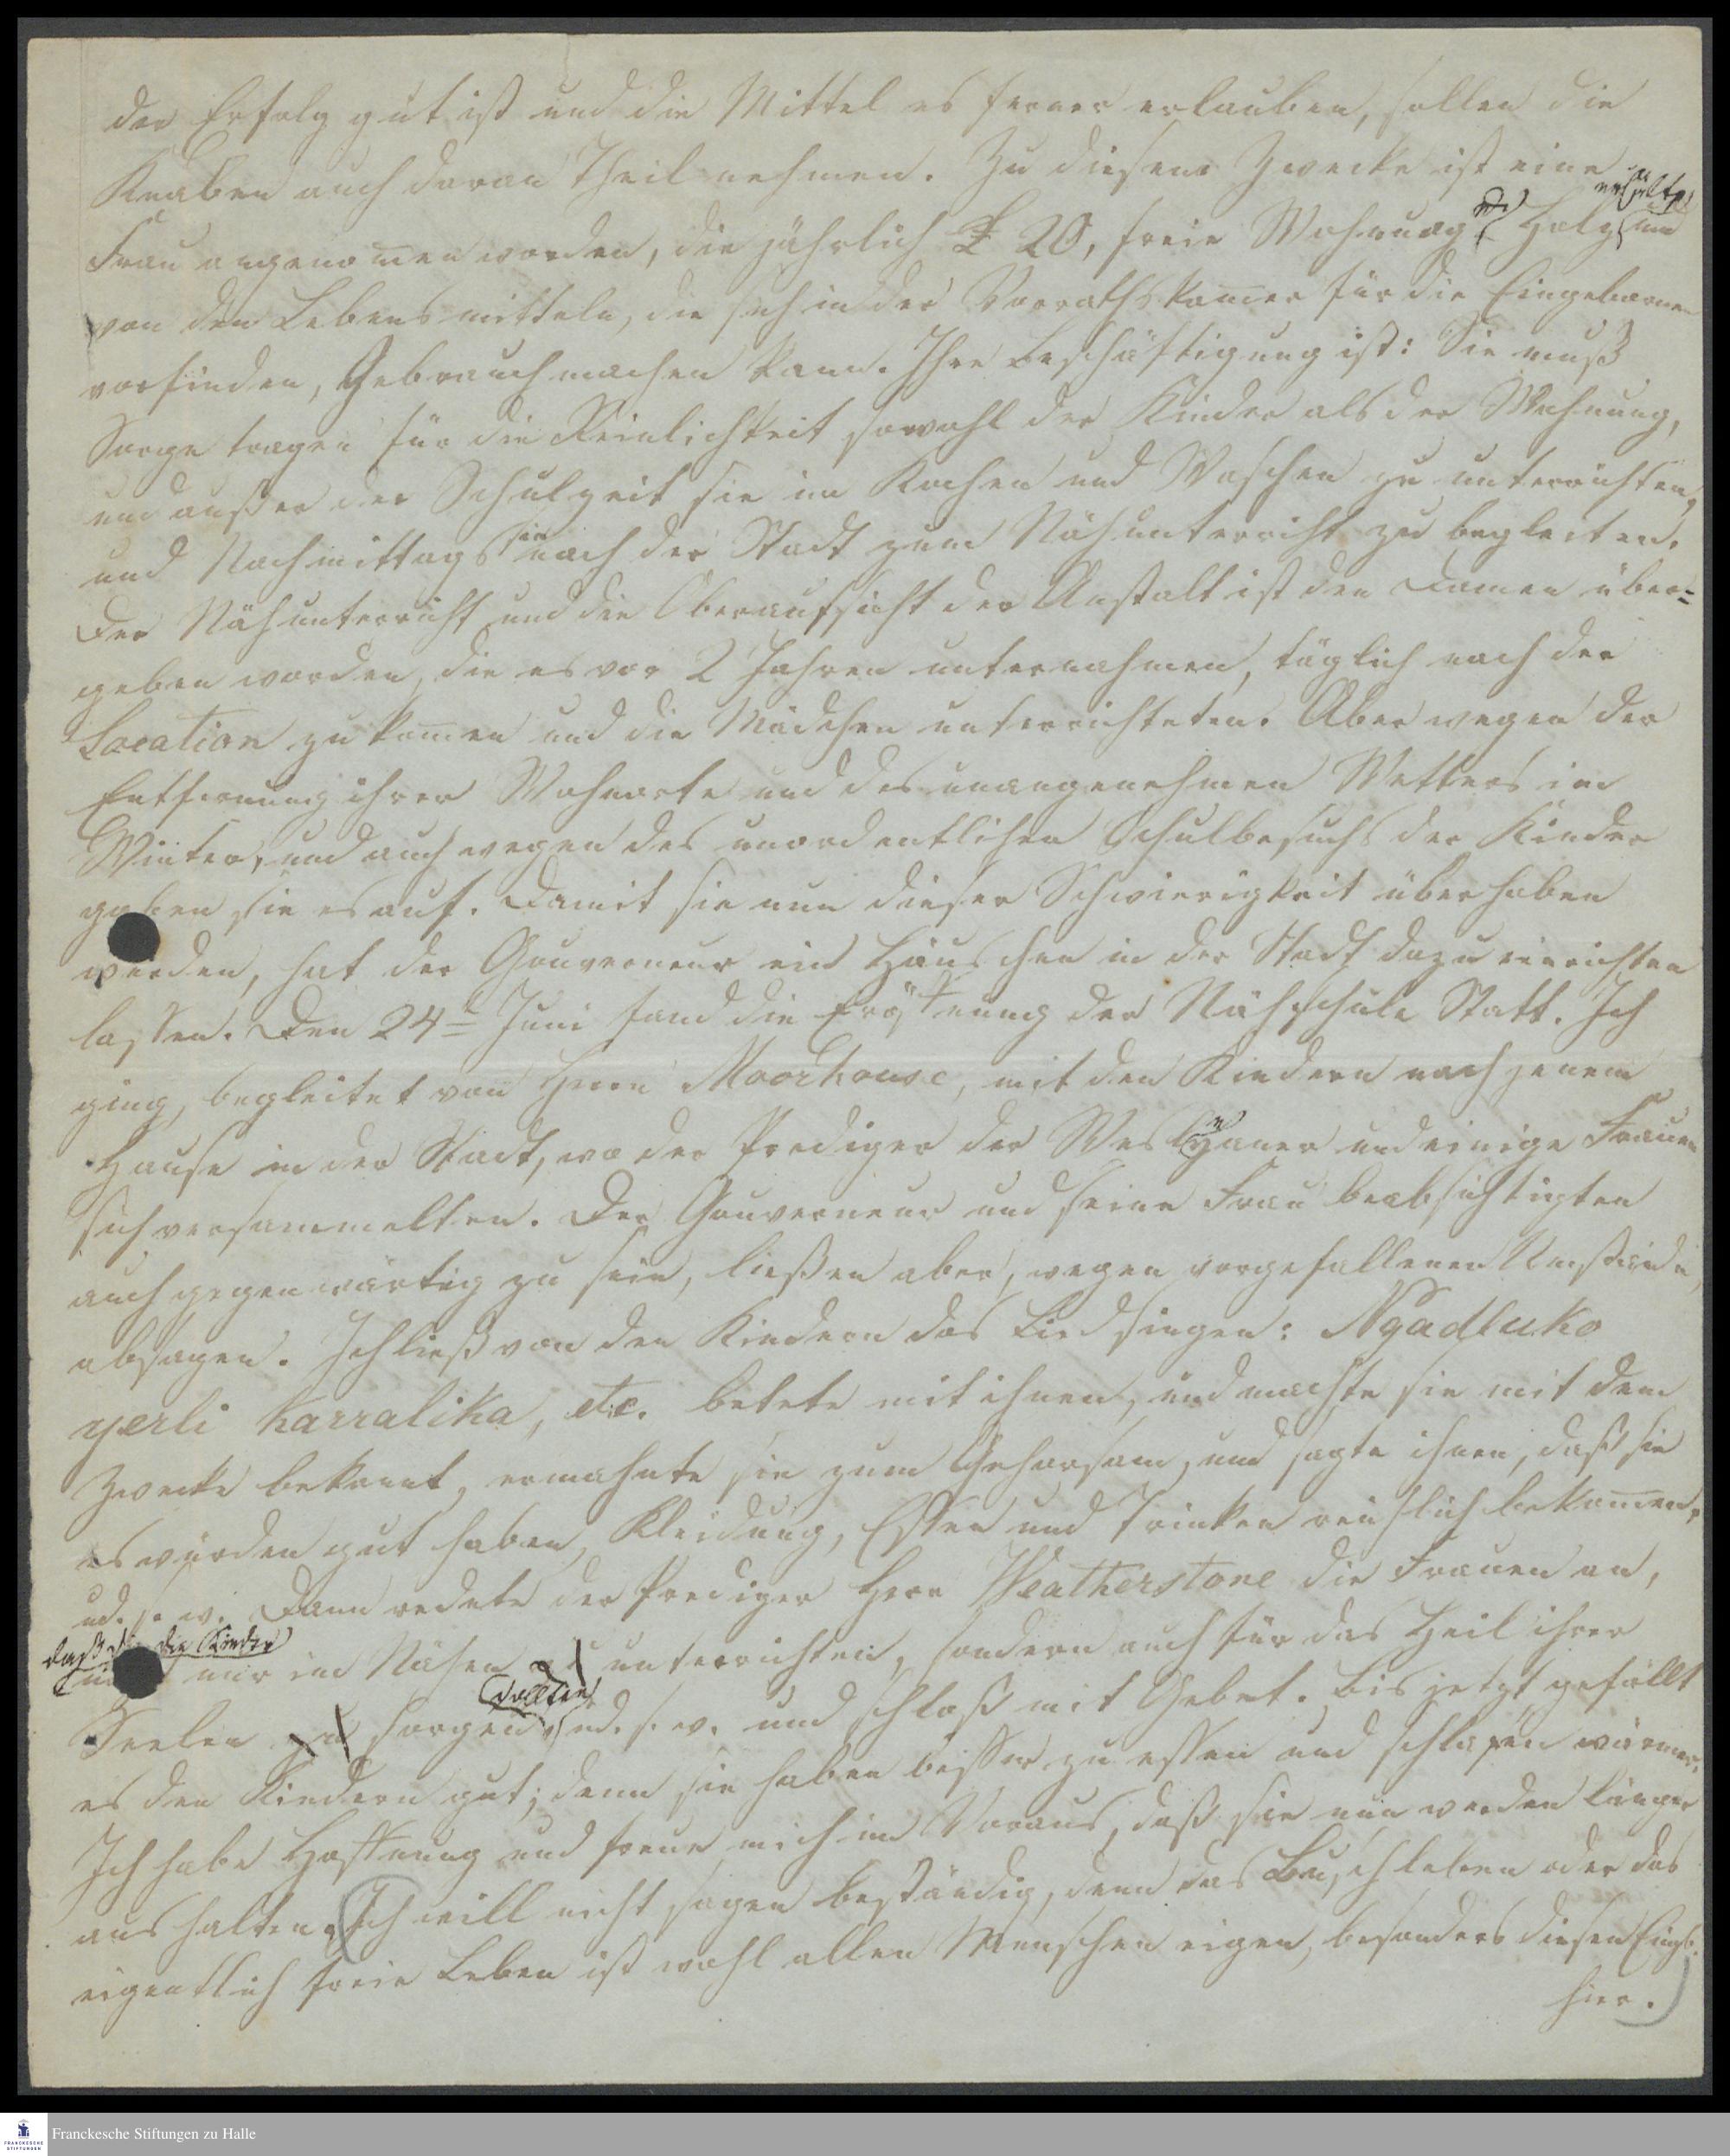 der Erfolg gut ist und die Mittel es ferner erlauben, sollen die
Knaben auch daran Theil nehmen. Zu diesem Zwecke ist eine
Frau angenom̅en worden, die jährlich £ 20, freie Wohnung u. Holz erhält und
von den Lebensmitteln, die sich in der Vorrathskam̅er für die Eingebornen
vorfinden, Gebrauch machen kann. Ihre Beschäftigung ist: Sie muß
Sorge tragen für die Reinlichkeit sowohl der Kinder als der Wohnung,
und außer der Schulzeit sie im Kochen und Waschen zu unterrichten,
und Nachmittags sie nach der Stadt zum Nähunterricht zu begleiten.
Der Nähunterricht und die Oberaufsicht der Anstalt ist den Damen über=
geben worden, die es vor 2 Jahren unternahmen, täglich nach der
Location zu kom̅en und die Mädchen unterrichteten. Aber wegen der
Entfernung ihrer Wohnorte und des unangenehmen Wetters im
Winter, und auch wegen des unordentlichen Schulbesuchs der Kinder
gaben sie es auf. Damit sie nun dieser Schwierigkeit überhoben
werden, hat der Gouverneur ein Häuschen in der Stadt dazu einrichten
lassen. Den 24t Juni fand die Eröffnung der Nähschule Statt. Ich
ging, begleitet von Herrn Moorhouse, mit den Kindern nach jenem
Hause in der Stadt, wo der Prediger der Wesleyaner und einige Frauen
sich versammelten. Der Gouverneur und seine Frau beabsichtigten
auch gegenwärtig zu sein, ließen aber, wegen vorgefallener Umstände,
absagen. Ich ließ von den Kindern das Lied singen: Ngadluko
yerli karralika, etc. betete mit ihnen, und machte sie mit dem
Zwecke bekannt, ermahnte sie zum Gehorsam, und sagte ihnen, daß sie
es würden gut haben, Kleidung, Essen und Trinken reichlich bekom̅en,
ud. s. w. Dann redete der Prediger Herr Weatherstone die Frauen an,
daß sie die Kinder
nicht nur im Nähen zu unterrichten, sondern auch für das Heil ihrer
Seelen zu sorgen sollten, ud. s. w. und schloß mit Gebet. Bis jetzt gefällt
es den Kindern gut; denn sie haben besser zu essen und schlafen wärmer.
Ich habe Hoffnung und freue mich im Voraus, daß sie nun werden länger
aushalten. (Ich will nicht sagen beständig, denn das Buschleben oder das
eigentlich freie Leben ist wohl allen Menschen eigen, besonders diesen Eingb.
hier.)
Franckesche Stiftungen zu Halle